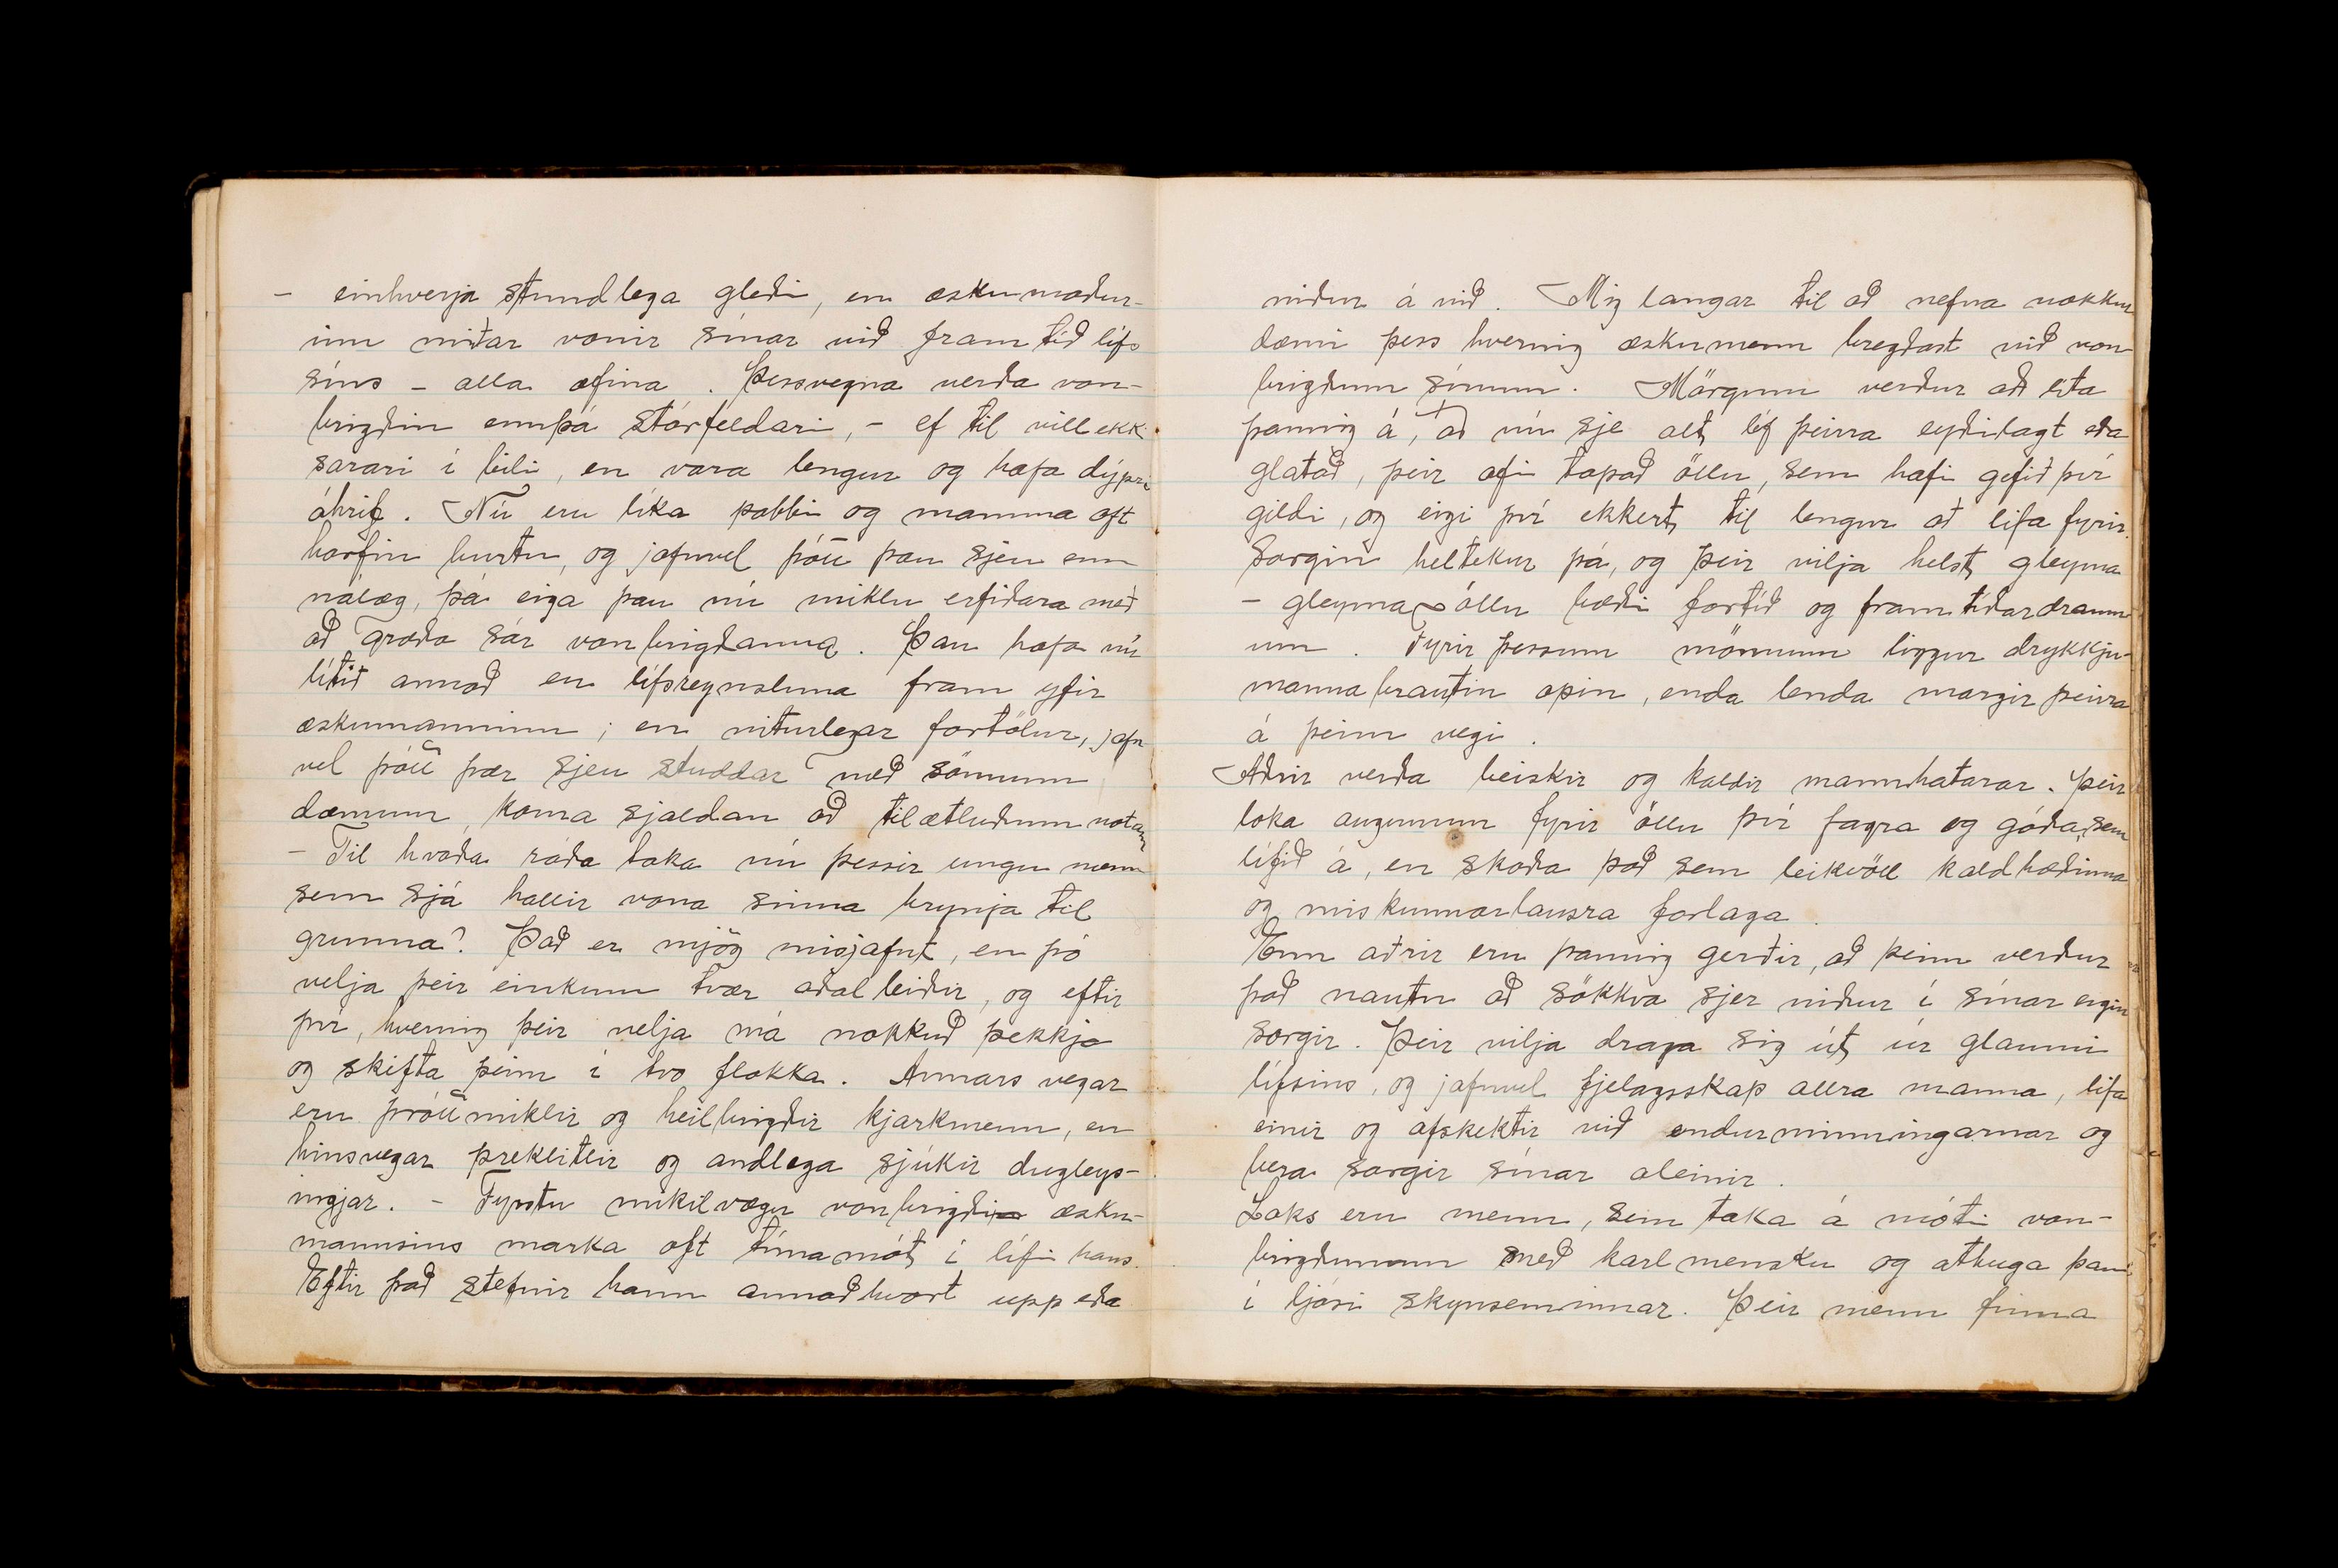 - einhverja stundlega gleði, en æskumaður-
inn miðar vonir sínar við framtíð lífs
síns - alla æfina. Þessvegna verða von-
brigðin ennþá stórfeldari, - ef til vill ekki
sárari í bili, en vara lengur og hafa dýpri
áhrif. Nú eru líka pabbi og mamma oft
horfin burtu, og jafnvel þótt þau sjeu enn
nálæg, þá eiga þau nú miklu erfiðara með
að græða sár vonbrigðanna. Þau hafa nú
lítið annað en lífsreynsluna fram yfir
æskumanninn; en viturlegar fortölur, jafn
vel þótt þær sjeu studdar með sönnum
dæmum, koma sjaldan að tilætluðum notum
- Til hvaða ráða taka nú þessir ungu menn
sem sjá hallir vona sinna hrynja til
grunna? Það er mjög misjafnt, en þó
velja þeir einkum tvær aðalleiðir, og eftir
því, hvernig þeir velja má nokkuð þekkja
og skifta þeim í tvo flokka. Annars vegar
eru þróttmiklir og heilbrigðir kjarkmenn, en
hinsvegar þreklitlir og andlega sjúkir dugleys-
ingjar. - Fyrstu mikilvægu vonbrigði æsku-
mannsins marka oft tímamót í lífi hans.
Eftir það stefnir hann annaðhvort upp eða
niður á við. Mig langar til að nefna nokkur
dæmi þess hvernig æskumenn bregðast við von-
brigðum sínum. Mörgum verður að líta
þannig á, að nú sje alt líf þeirra eyðilagt eða
glatað, þeir hafi tapað öllu, sem hafi gefið því
gildi, og eigi því ekkert til lengur að lifa fyrir.
Sorgin heltekur þá, og þeir vilja helst gleyma
- gleyma öllu bæði fortíð og framtíðardraum-
um. Fyrir þessum mönnum liggur drykkju-
mannabrautin opin, enda lenda margir þeirra
á þeim vegi.
Aðrir verða beiskir og kaldir mannhatarar. Þeir
loka augunum fyrir öllu því fagra og góða, sem
lífið á, en skoða það sem leikvöll kaldhæðinna
og miskunnarlausra forlaga.
Enn aðrir eru þannig gerðir, að þeim verður
það nautn að sökkva sjer niður í sínar eigin
sorgir. Þeir vilja draga sig út úr glaumi
lífsins, og jafnvel fjelagsskap allra manna, lifa
einir og afskektir við endurminningarnar og
bera sorgir sínar aleinir.
Loks eru menn, sem taka á móti von-
brigðunum með karlmensku og athuga þau
í ljósi skynseminnar. Þeir menn finna